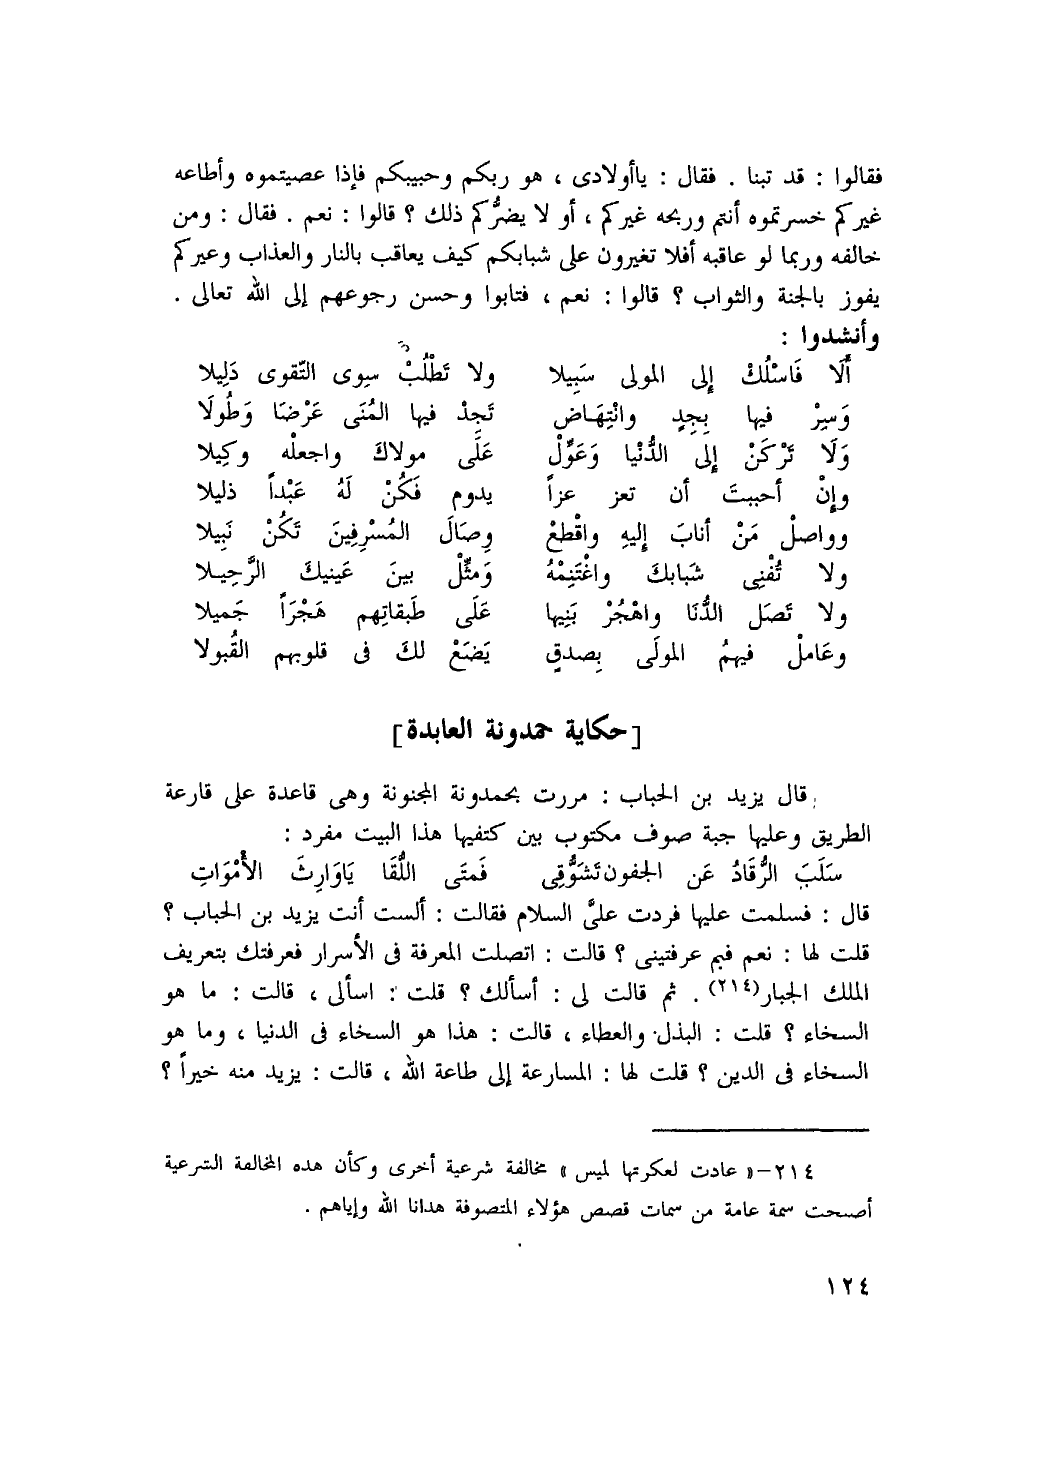 فقالوا : قد تبنا . فقال : ياأولادى ، هو ربكم وحبيبكم فإذا عصيتموه وأطاعه
غيركم خسرتموه أنتم وربحه غيركم ، أو لا يضرُّكم ذلك ؟ قالوا : نعم . فقال : ومن
خالفه وربما لو عاقبه أفلا تغيرون على شبابكم كيف يعاقب بالنار والعذاب وغيركم
يفوز بالجنة والثواب ؟ قالوا : نعم ، فتابوا وحسن رجوعهم إلى الله تعالى .
وأنشدوا :
أَلَا فَاسْلُكْ إلى المولى سَبِيلا ولا تَطْلُبْ سِوى التّقوى دَلِيلا
وَسِيْرْ فيها بِجِدٍ وانْتِهَاض تَجِدْ فيها المُنَى عَرْضَا وَطُولَا
وَلَا تَرْكَنْ إلى الدُّنْيا وَعَوِّلْ عَلَى مولاكَ واجعلْه وكِيلا
وإنْ أحببتَ أن تعز عزاً يدوم فَكُنْ لَهُ عَبْداً ذليلا
وواصلْ مَنْ أنابَ إليهِ واقْطعْ وِصَالَ المُسْرِفِينَ تَكُنْ نَبِيلا
ولا تُفْنِى شَبابكَ واغْتَنِمْهُ وَمثِّلْ بينَ عَينيكَ الرَّحِيـلا
ولا تَصَل الدُّنَا واهْجُرْ بَنِيها عَلَى طَبقاتِهم هَجْرَاً جَميلا
وعَاملْ فيهمُ المولَى بِصدقٍ يَضَعْ لكَ فى قلوبهم القُبولا
[حكاية حمدونة العابدة]
قال يزيد بن الحباب : مررت بحمدونة المجنونة وهى قاعدة على قارعة
الطريق وعليها جبة صوف مكتوب بين كتفيها هذا البيت مفرد :
سَلَبَ الرُّقَادُ عَن الجفون تَشَوُّقِى فَمتَى اللُّقَا يَاوَارِثَ الأَمْوَاتِ
قال : فسلمت عليها فردت علىَّ السلام فقالت : ألست أنت يزيد بن الحباب ؟
قلت لها : نعم فبم عرفتينى ؟ قالت : اتصلت المعرفة فى الأسرار فعرفتك بتعريف
الملك الجبار(٢١٤) . ثم قالت لى : أسألك ؟ قلت : اسألى ، قالت : ما هو
السخاء ؟ قلت : البذل والعطاء ، قالت : هذا هو السخاء فى الدنيا ، وما هو
السخاء فى الدين ؟ قلت لها : المسارعة إلى طاعة الله ، قالت : يزيد منه خيراً ؟
٢١٤ـ« عادت لعكرتها لميس » مخالفة شرعية أخرى وكأن هذه المخالفة الشرعية
أصبحت سمة عامة من سمات قصص هؤلاء المتصوفة هدانا الله وإياهم .
١٢٤